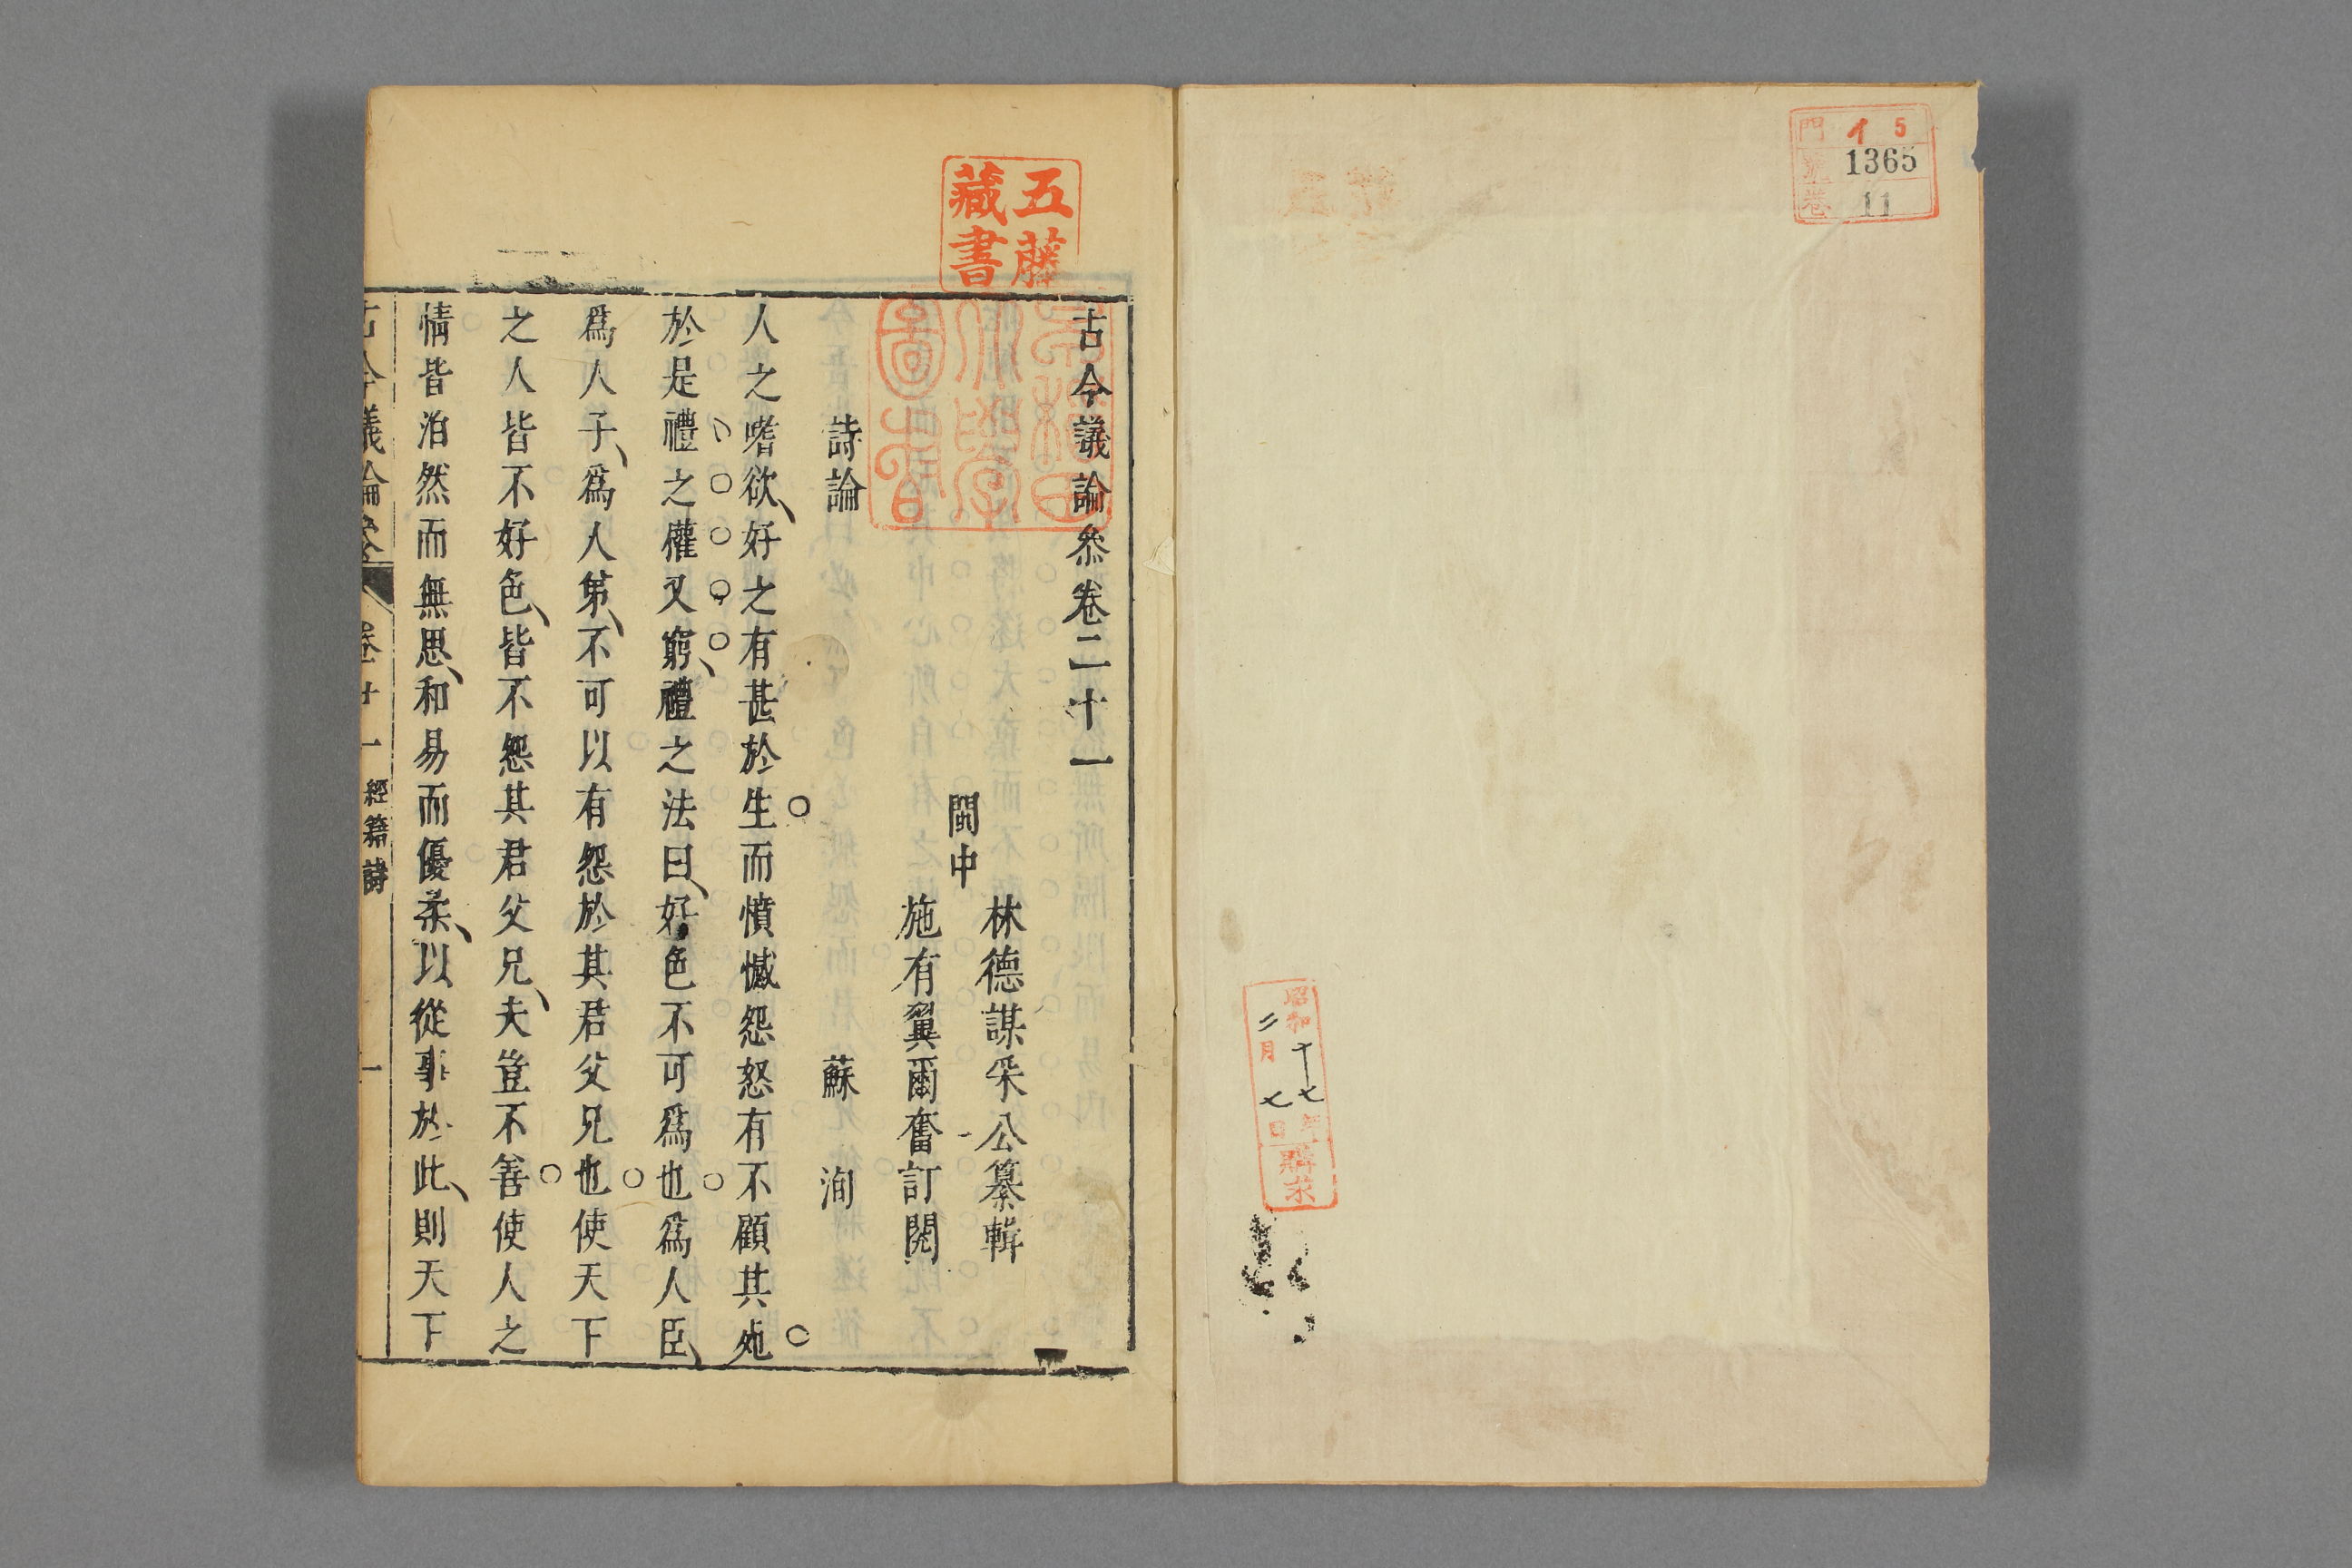 門 イ 5
號 1365
卷 11
昭和十七年
二月七日
購求
五藤
藏書
早稲田
大學
圖書
古今議論叅卷二十一
閩中
林德謀采公纂輯
施有翼爾奮訂閱
詩論
蘇洵
人之嗜欲好之有甚於生而憤憾怨怒有不顧其死
於是禮之權又窮禮之法曰好色不可爲也爲人臣
爲人子爲人弟不可以有怨於其君父兄也使天下
之人皆不好色皆不怨其君父兄夫豈不善使人之
情皆泊然而無思和易而優柔以從事於此則天下
古今議論叅
卷廿一
經籍詩
一